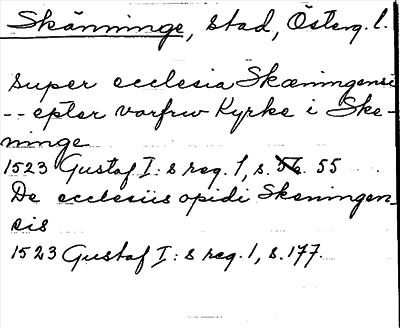 Skänninge, stad, Österg. l.
super ecclesia Skæningensi
-- epter varfrw Kyrke i Ske-
ninge
1523 Gustaf I: s reg. 1, s. 56. 55
De ecclesiis opidi Skeningen-
sis
1523 Gustaf I: s reg. 1, s. 177.